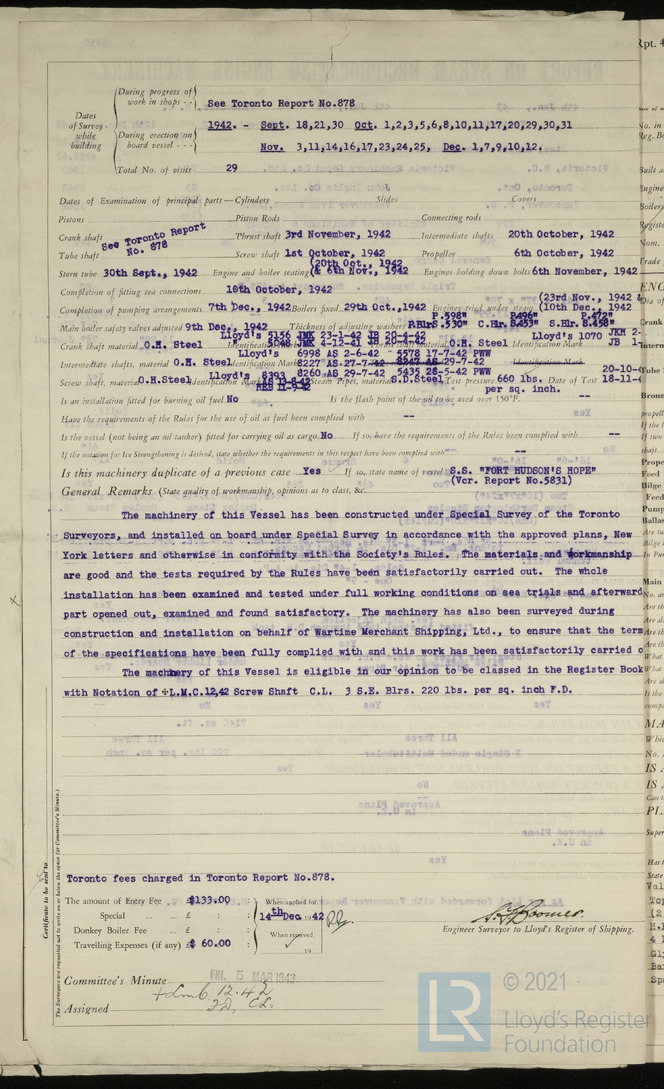 Rpt. 4
During progress of work in shops - - See Toronto Report No.878
Dates of Survey while building
During erection on board vessel - - -
1942. - Sept. 18,21,30 Oct. 1,2,3,5,6,8,10,11,17,20,29,30,31
Nov. 3,11,14,16,17,23,24,25, Dec. 1,7,9,10,12.
Total No. of visits 29
Dates of Examination of principal parts—Cylinders Slides Covers
Pistons Piston Rods Connecting rods
Crank shaft See Toronto Report No. 878 Thrust shaft 3rd November, 1942 Intermediate shafts 20th October, 1942
Tube shaft Screw shaft 1st October, 1942 Propeller 6th October, 1942
Stern tube 30th Sept., 1942 Engine and boiler seating (20th Oct., 1942 (& 6th Nov., 1942 Engines holding down bolts 6th November, 1942
Completion of fitting sea connections 18th October, 1942
Completion of pumping arrangements 7th Dec., 1942 Boilers fixed 29th Oct., 1942 Engines tried under steam (23rd Nov., 1942 & (10th Dec., 1942
Main boiler safety valves adjusted 9th Dec., 1942 Thickness of adjusting washers P.598" R496" P.472"
P.Blr S.530" C.Blr. S453" S.Blr. S.458"
Crank shaft material O.H. Steel Identification Mark Lloyd's 5156 JMK 23-1-42 JB 28-4-42
5048 JMK 4-12-41 Thrust shaft material O.H. Steel Identification Mark Lloyd's 1070 JKM 2-
JB 1-
Intermediate shafts, material O.H. Steel Identification Marks Lloyd's 6998 AS 2-6-42 - 5578 17-7-42 PWW
8227 AS 27-7-42 8247 AS 29-7-42
8260 AS 29-7-42 5435 28-5-42 PWW
Screw shaft, material O.H.Steel Identification Mark Lloyd's 8393 AS 13-8-42 HEB 11-9-42 Steam Pipes, material S.D.Steel Test pressure 660 lbs. per sq. inch. Date of Test 20-10-4
18-11-4
Is an installation fitted for burning oil fuel No Is the flash point of the oil to be used over 150°F. --
Have the requirements of the Rules for the use of oil as fuel been complied with --
Is the vessel (not being an oil tanker) fitted for carrying oil as cargo No If so, have the requirements of the Rules been complied with --
If the notation for Ice Strengthening is desired, state whether the requirements in this respect have been complied with --
Is this machinery duplicate of a previous case Yes If so, state name of vessel S.S. "FORT HUDSON'S HOPE"
(Vcr. Report No.5831)
General Remarks (State quality of workmanship, opinions as to class, &c.
The machinery of this Vessel has been constructed under Special Survey of the Toronto
Surveyors, and installed on board under Special Survey in accordance with the approved plans, New
York letters and otherwise in conformity with the Society's Rules. The materials and workmanship
are good and the tests required by the Rules have been satisfactorily carried out. The whole
installation has been examined and tested under full working conditions on sea trials and afterward
part opened out, examined and found satisfactory. The machinery has also been surveyed during
construction and installation on behalf of Wartime Merchant Shipping, Ltd., to ensure that the term
of the specifications have been fully complied with and this work has been satisfactorily carried o
The machinery of this Vessel is eligible in our opinion to be classed in the Register Book
with Notation of +L.M.C.12,42 Screw Shaft C.L. 3 S.E. Blrs. 220 lbs. per sq. inch F.D.
Certificate to be sent to
The Surveyors are requested not to write on or below the space for Committee's Minute.
Toronto fees charged in Toronto Report No.878.
The amount of Entry Fee .. £ $133.00 When applied for,
Special ... ... £ : : 14th Dec. 19 42
Donkey Boiler Fee ... £ : : When received,
Travelling Expenses (if any) £ $ 60.00 19
Engineer Surveyor to Lloyd's Register of Shipping.
Committee's Minute FRI. 5 MAR 1943
Assigned + Lmb 12.42
FD, CL.
LR © 2021
Lloyd's Register
Foundation